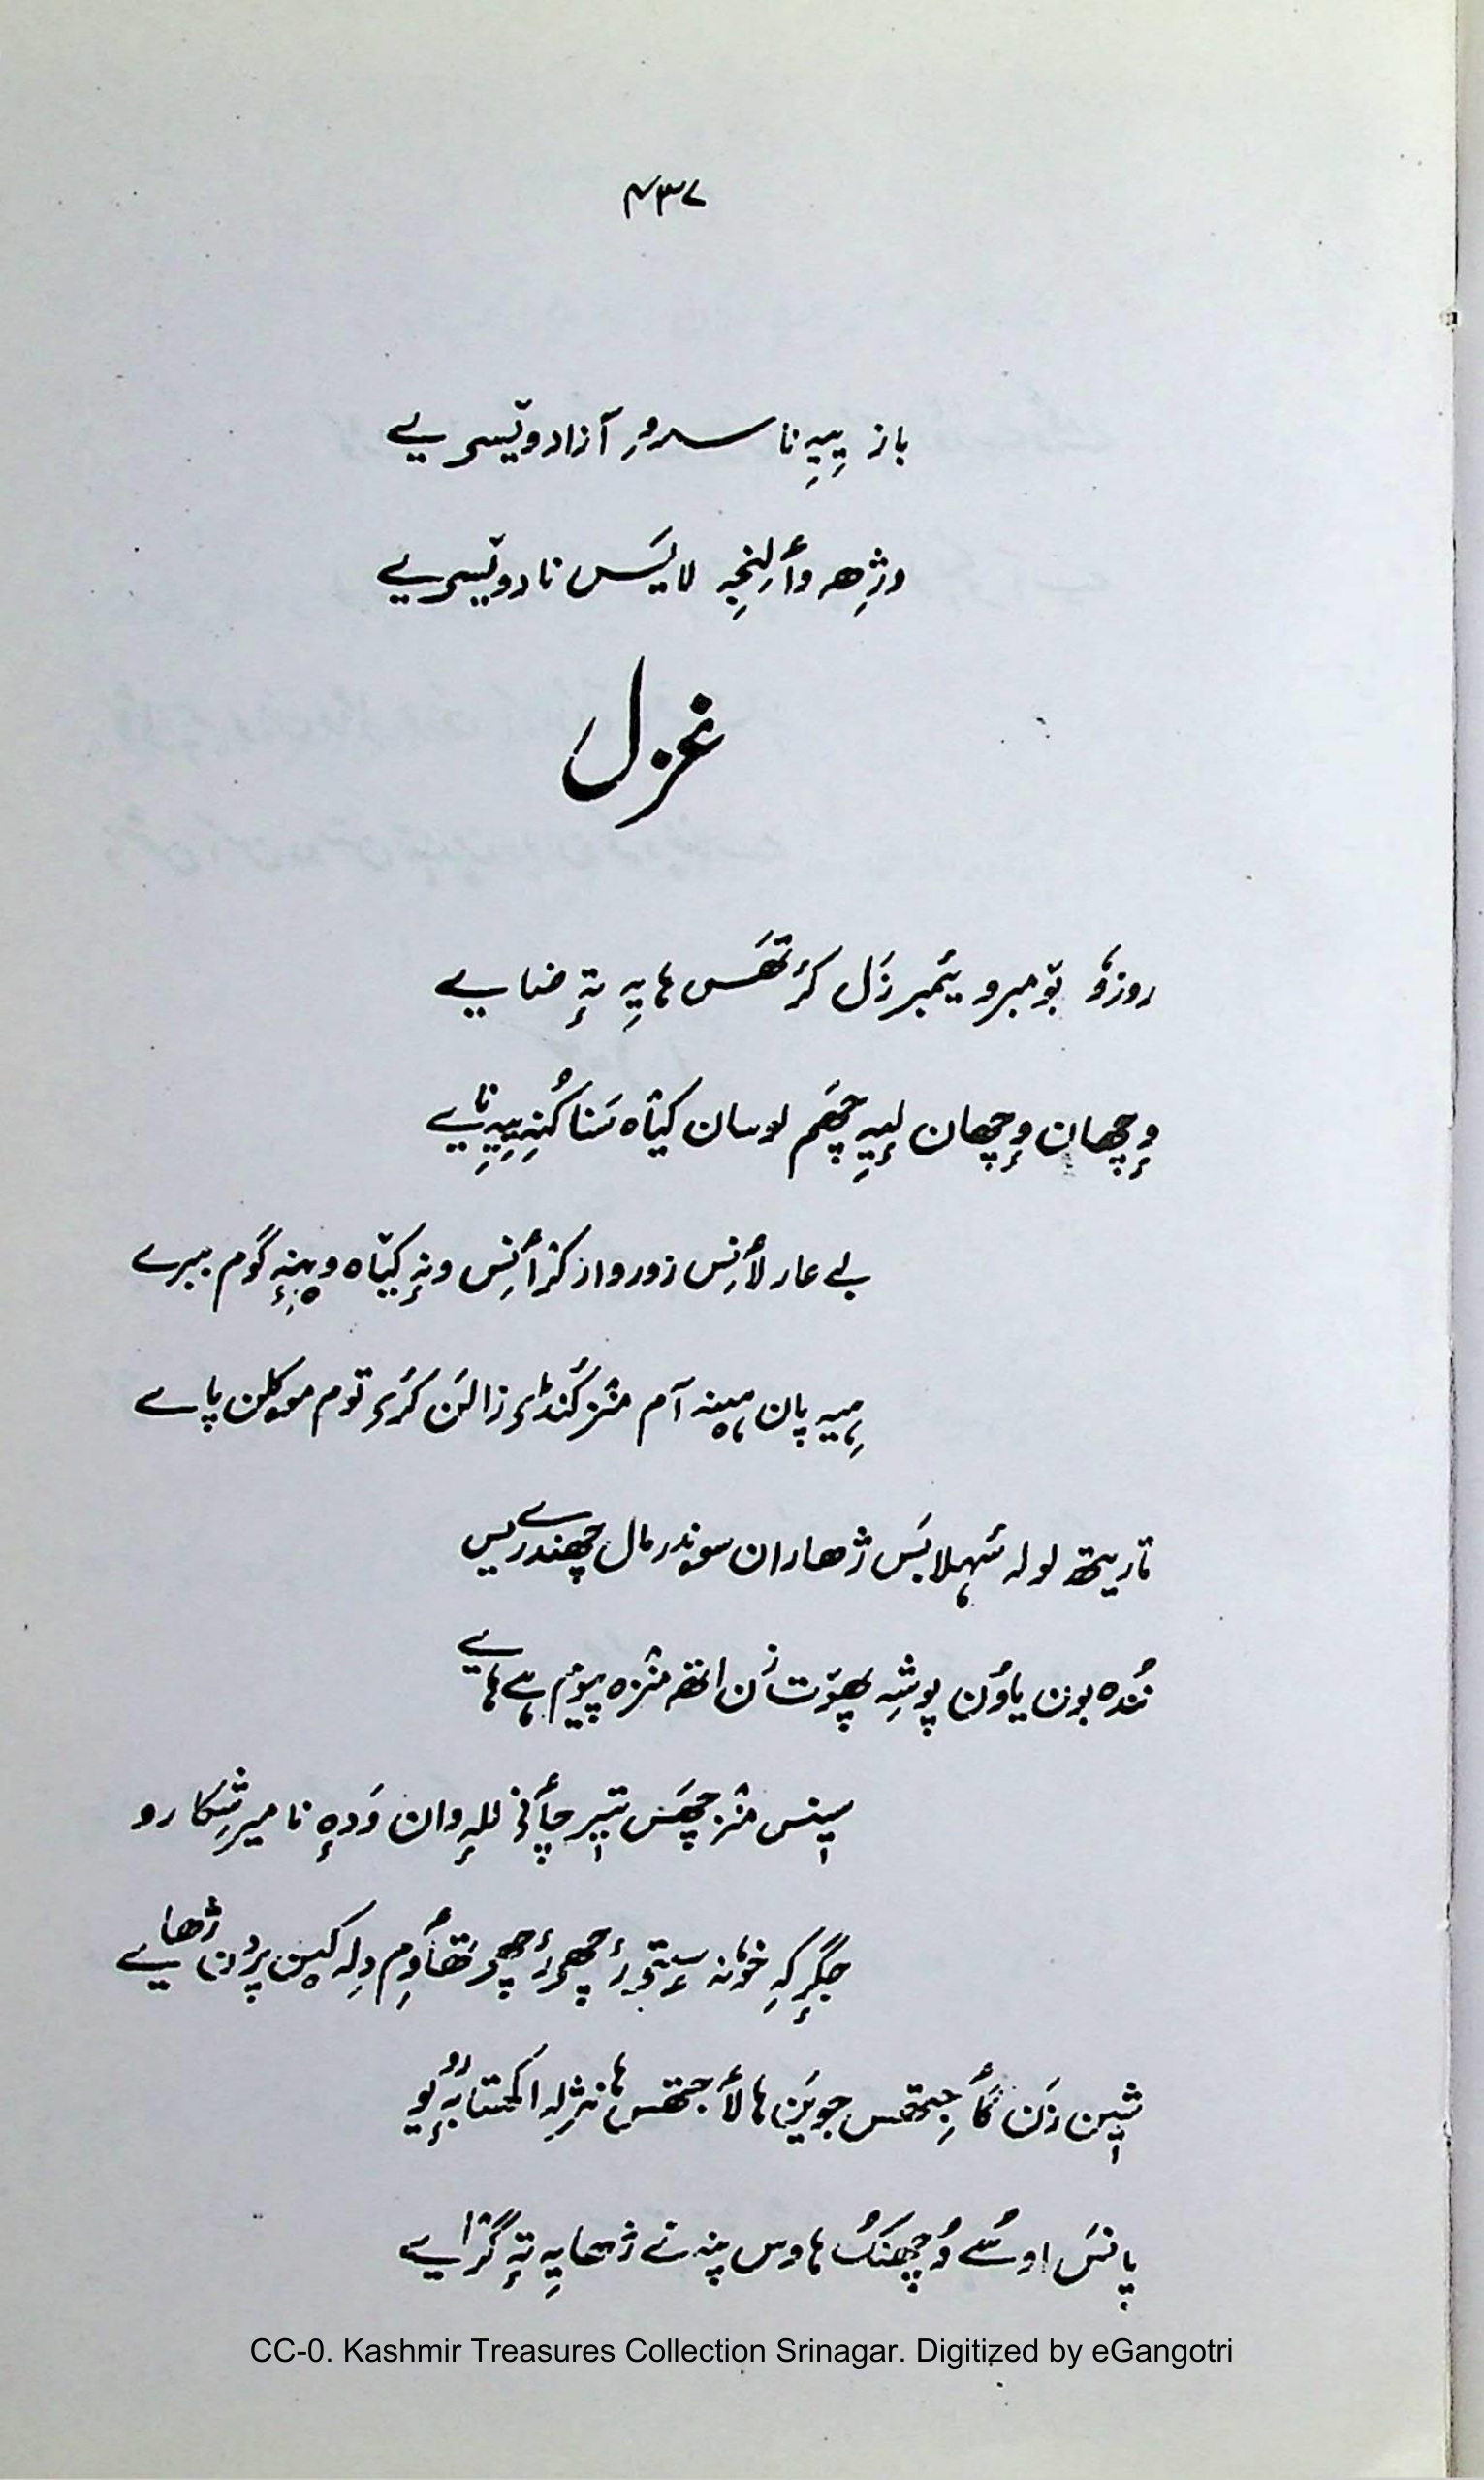 ۴۳۷
باز ییِہِ نا سرورِ آزاد وٮ۪سی یے
وژھِ وأ لِنجہِ لایَس نا دوٮ۪سی یے
غزل
روزوٗ بو٘مبرو یَمبرزَل کرٔتھس ہایہِ تہٕ ضایے
وٕچھان وٕچھان لیہِ چھَم لوسان کیٛاہ سَنا کُنہِ ییہِ نایے
بے عار لأنِس زور واز کرٛأنِس ونہٕ کیٛاہ وہنہٕ گوم ببرے
ہیہِ پان ہینہٕ آم منٛز کُنڈی زالَن کرٔی توم موکلن پاے
تاریتھ لولہ سٔہلابَس ژھاران سوندرمال چھندریس
نُندہ بون یاوُن پوشہِ پھو٘ت زَن اتھہ منٛزہ پیوٚم ہے ہایے
سپنس منٛز چھَس تیٖر چأنی للہٕ وان وَدہٕ نا میر شِکارو
جگرٕکہِ خوٗنہ ستی رٔچھی رٔچھی تھأوِم دِلہ کین پردن ژھایے
شیٖن زَن گأجِتھس جویَن ہا لأجتھس ہا نژلہِ اکھتابہٕ رویو
پانَس اوسُے وُچھنُک ہاوس پنہ نے ژھایہِ تہٕ گرٛایے
CC-0. Kashmir Treasures Collection Srinagar. Digitized by eGangotri